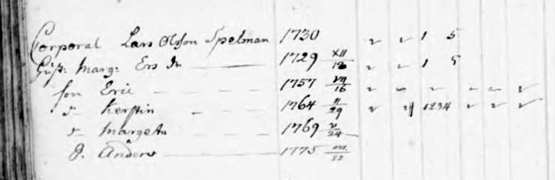 Corporal Lars Olsson Spelman 1730 1 5
Hust. Marg: Ers Dr 1729 XII 1 5
Son Eric 1757 VII/16
d Kerstin 1764 II/29 1234
d Margeta 1769 V/24
S. Anders 1775